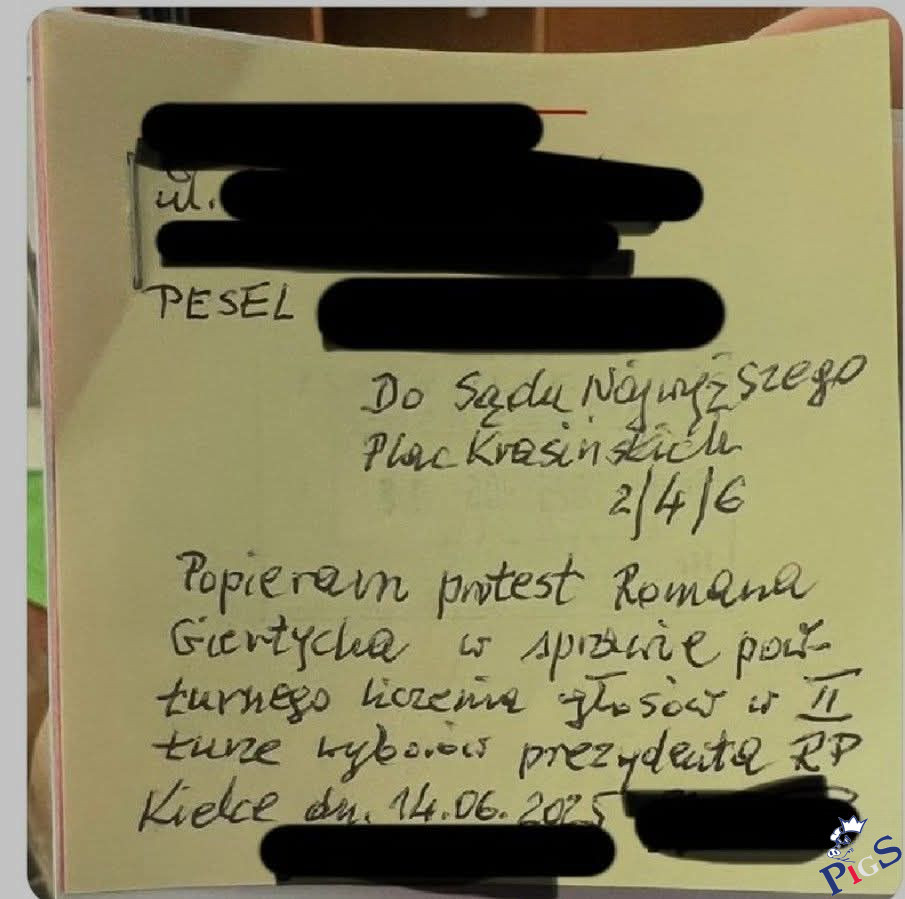 ul.
PESEL
Do Sądu Najwyższego
Plac Krasińskich
2/4/6
Popieram protest Romana
Giertycha w sprawie pow-
turnego liczenia głosów w II
turze wyborów prezydenta RP
Kielce dn. 14.06.2025
PIGS